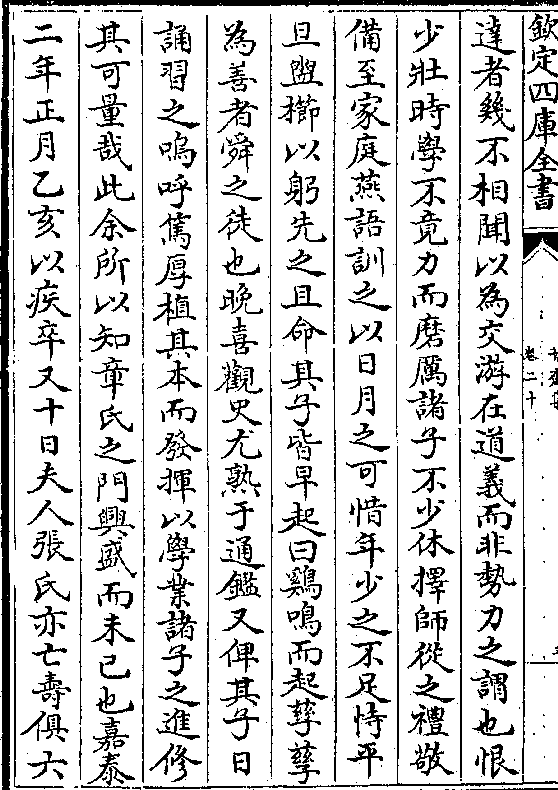 欽定四庫全書
卷二十
達者幾不相聞以為交游在道義而非勢力之謂也恨
少壯時學不竟力而磨厲諸子不少休擇師從之禮敬
備至家庭燕語訓之以日月之可惜年少之不足恃平
旦盥櫛以躬先之且命其子皆早起曰鷄鳴而起孳孳
為善者舜之徒也晚喜觀史尤熟于通鑑又俾其子日
誦習之嗚呼篤厚植其本而發揮以學業諸子之進修
其可量哉此余所以知章氏之門興盛而未已也嘉泰
二年正月乙亥以疾卒又十日夫人張氏亦亡壽俱六